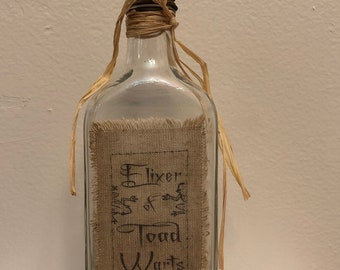 Elixer
of
Toad
Warts